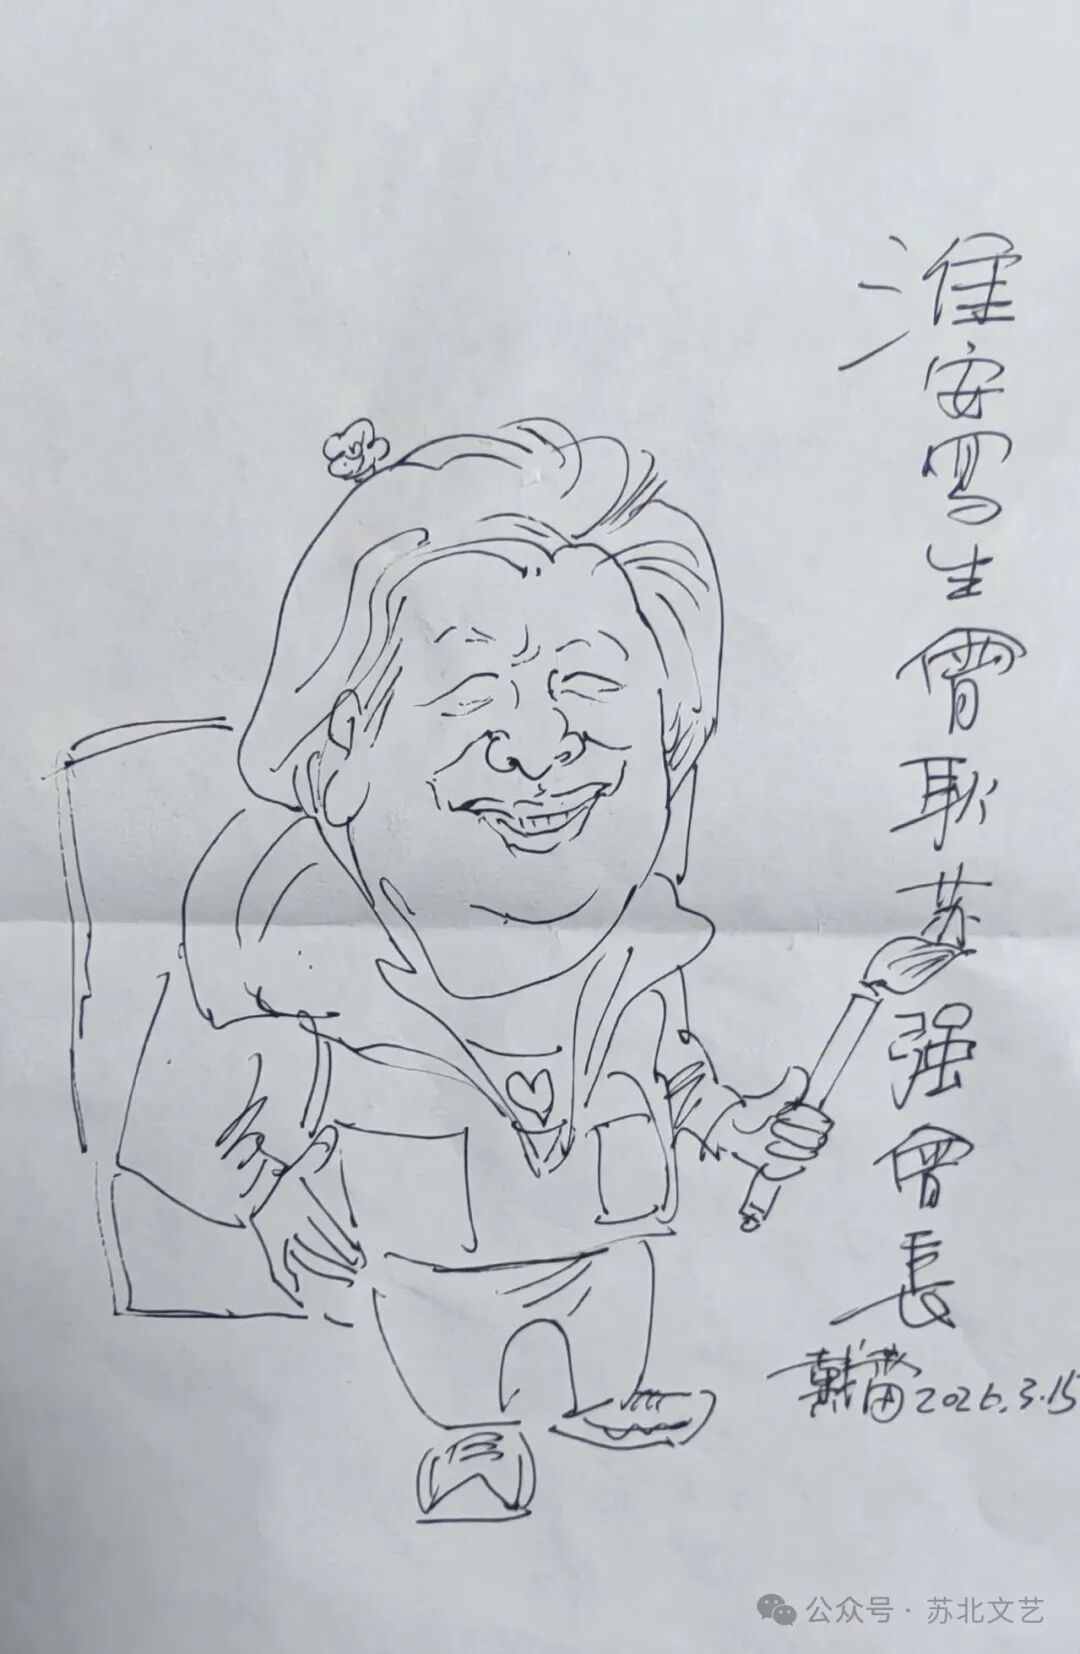 淮安写生會耿苏强會長
戴 2026.3.15
公众号·苏北文艺